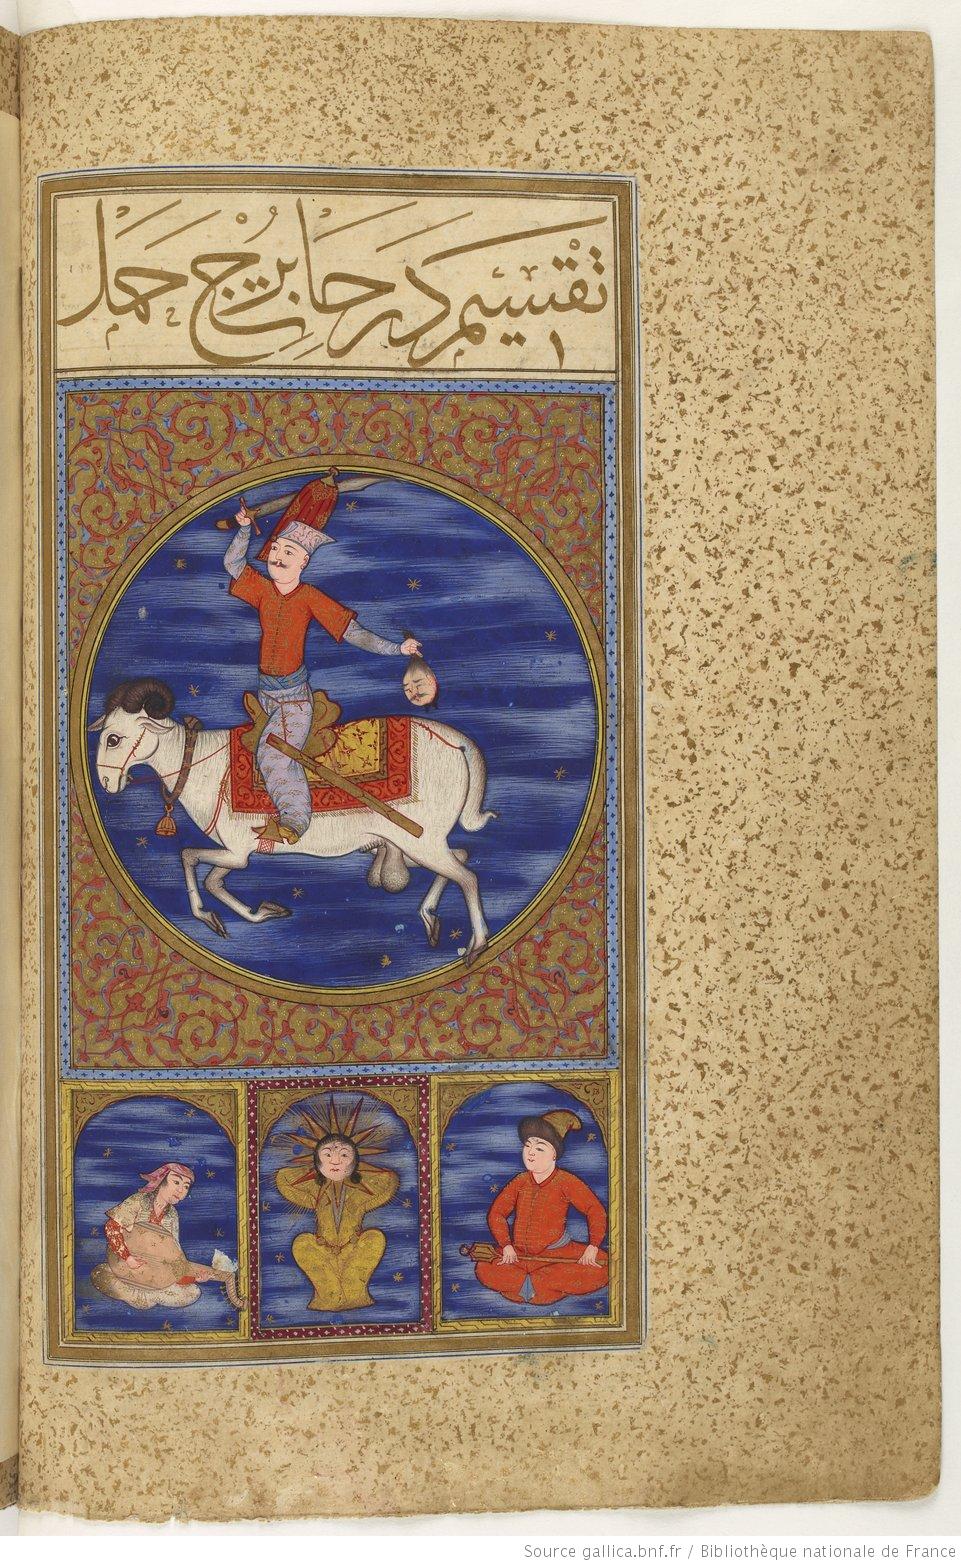 تقسيم درجات برج حمل
Source gallica.bnf.fr / Bibliothèque nationale de France